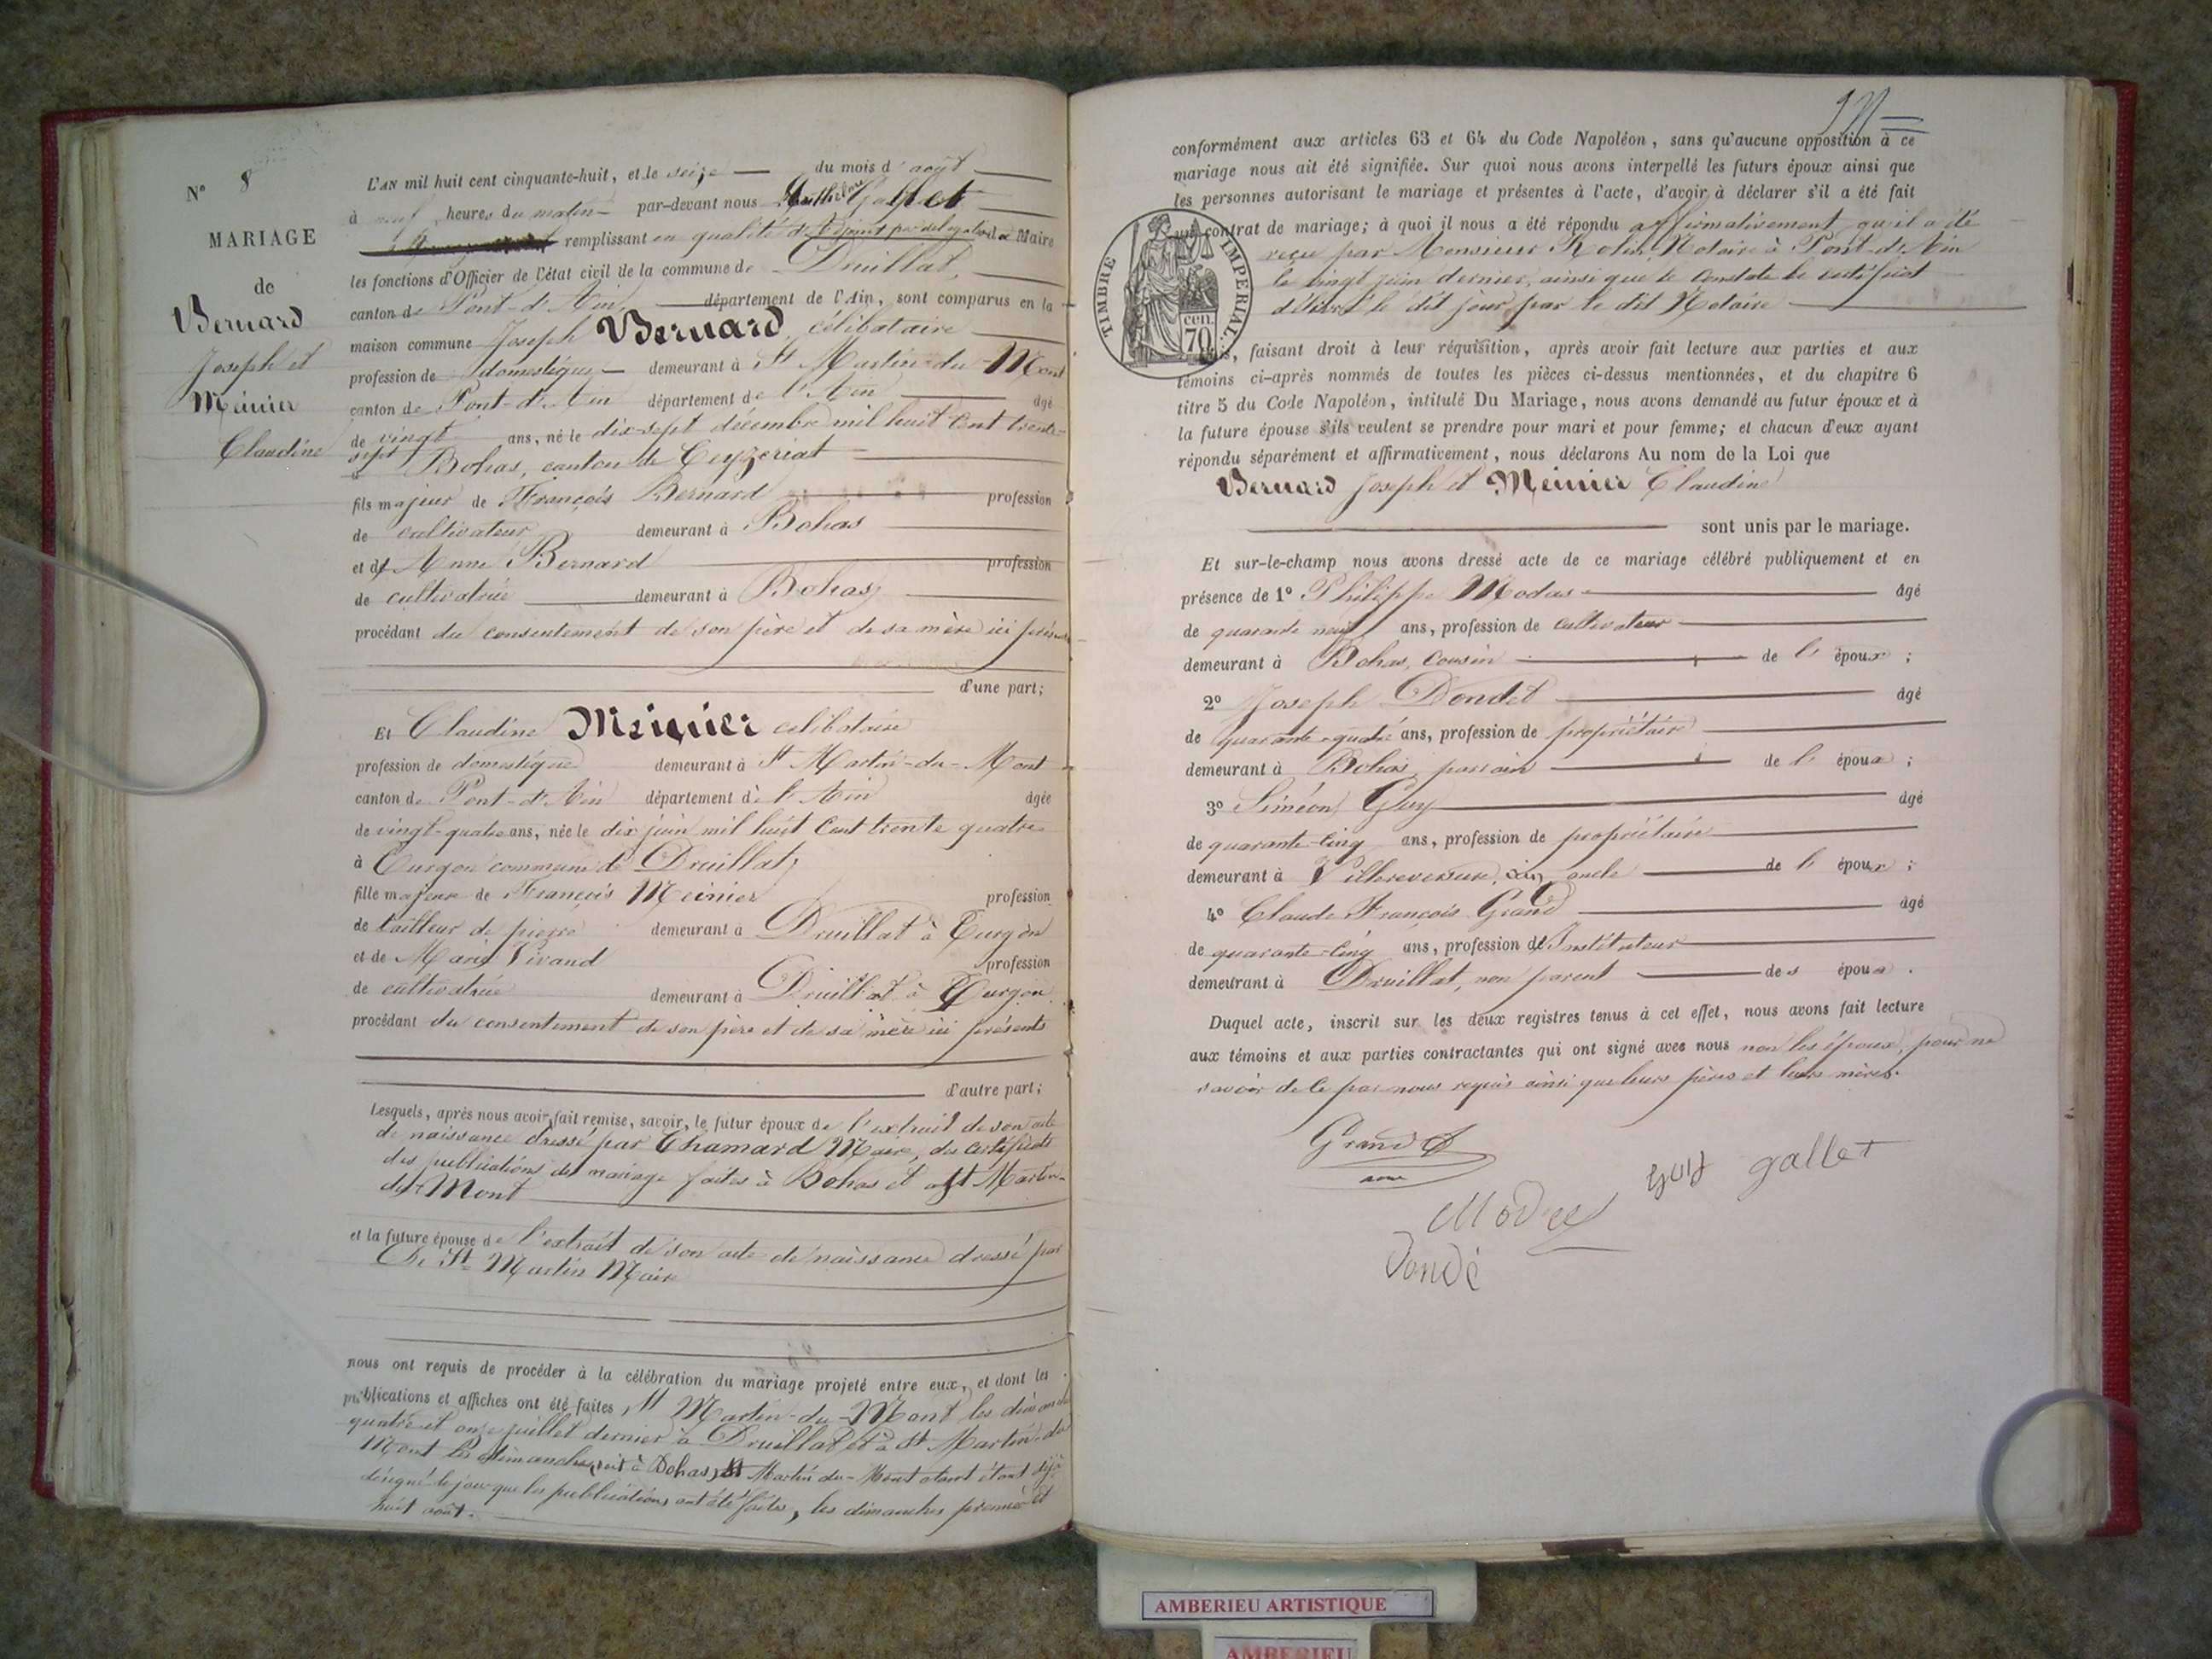 N° 8
MARIAGE
de
Bernard
Joseph et
Meinier
Claudine
L'AN mil huit cent cinquante-huit, et le seize du mois d'août
à neuf heures du matin par-devant nous Gallet
remplissant en qualité d'Adjoint par délégation de Maire
les fonctions d'Officier de l'état civil de la commune de Druillat,
canton de Pont-d'Ain, département de l'Ain, sont comparus en la
maison commune Joseph Bernard, célibataire
profession de domestique demeurant à St Martin-du-Mont
canton de Pont-d'Ain département de l'Ain âgé
de vingt ans, né le dix-sept décembre mil huit cent trente-
sept à Bohas, canton de Ceyzeriat
fils majeur de François Bernard profession
de cultivateur demeurant à Bohas
et de Anne Bernard profession
de cultivatrice demeurant à Bohas
procédant du consentement de son père et de sa mère ici présents
d'une part;
Et Claudine Meinier célibataire
profession de domestique demeurant à St Martin-du-Mont
canton de Pont-d'Ain département de l'Ain âgée
de vingt-quatre ans, née le dix juin mil huit cent trente quatre
à Turgon commune de Druillat,
fille majeure de François Meinier profession
de tailleur de pierre demeurant à Druillat à Turgon
et de Marie Vivand profession
de cultivatrice demeurant à Druillat à Turgon
procédant du consentement de son père et de sa mère ici présents
d'autre part;
Lesquels, après nous avoir fait remise, savoir, le futur époux de l'extrait de son acte
de naissance dressé par Chamard Maire, des certificats
des publications de mariage faites à Bohas et à St Martin-
du-Mont
et la future épouse de l'extrait de son acte de naissance dressé par
St Martin Maire
nous ont requis de procéder à la célébration du mariage projeté entre eux, et dont les
publications et affiches ont été faites, St Martin-du-Mont les dimanches
quatre et onze juillet dernier à Druillat et à St Martin-du
Mont les dimanches, soit à Bohas, St Martin-du-Mont étant déjà
désigné le jour que les publications ont été faites, les dimanches premier et
huit août.
conformément aux articles 63 et 64 du Code Napoléon, sans qu'aucune opposition à ce
mariage nous ait été signifiée. Sur quoi nous avons interpellé les futurs époux ainsi que
les personnes autorisant le mariage et présentes à l'acte, d'avoir à déclarer s'il a été fait
un contrat de mariage; à quoi il nous a été répondu affirmativement qu'il a été
reçu par Monsieur Rolin, Notaire à Pont-d'Ain
le vingt juin dernier, ainsi que le constate le certificat
délivré le dit jour par le dit Notaire
TIMBRE IMPERIAL.
70 cen
Puis, faisant droit à leur réquisition, après avoir fait lecture aux parties et aux
témoins ci-après nommés de toutes les pièces ci-dessus mentionnées, et du chapitre 6
titre 5 du Code Napoléon, intitulé Du Mariage, nous avons demandé au futur époux et à
la future épouse s'ils veulent se prendre pour mari et pour femme; et chacun d'eux ayant
répondu séparément et affirmativement, nous déclarons Au nom de la Loi que
Bernard Joseph et Meinier Claudine
sont unis par le mariage.
Et sur-le-champ nous avons dressé acte de ce mariage célébré publiquement et en
présence de 1° Philippe Modas âgé
de quarante neuf ans, profession de cultivateur
demeurant à Bohas, cousin de l'époux;
2° Joseph Dondet âgé
de quarante-quatre ans, profession de propriétaire
demeurant à Bohas, parrain de l'époux;
3° Siméon Guy âgé
de quarante-cinq ans, profession de propriétaire
demeurant à Villereversure, oncle de l'époux;
4° Claude François Grand âgé
de quarante-cinq ans, profession d'Instituteur
demeurant à Druillat, non parent des époux.
Duquel acte, inscrit sur les deux registres tenus à cet effet, nous avons fait lecture
aux témoins et aux parties contractantes qui ont signé avec nous non les époux, pour ne
savoir de ce par nous requis ainsi que leurs pères et leurs mères.
Grand
guy gallet
Dondé
AMBERIEU ARTISTIQUE
AMBERIEU